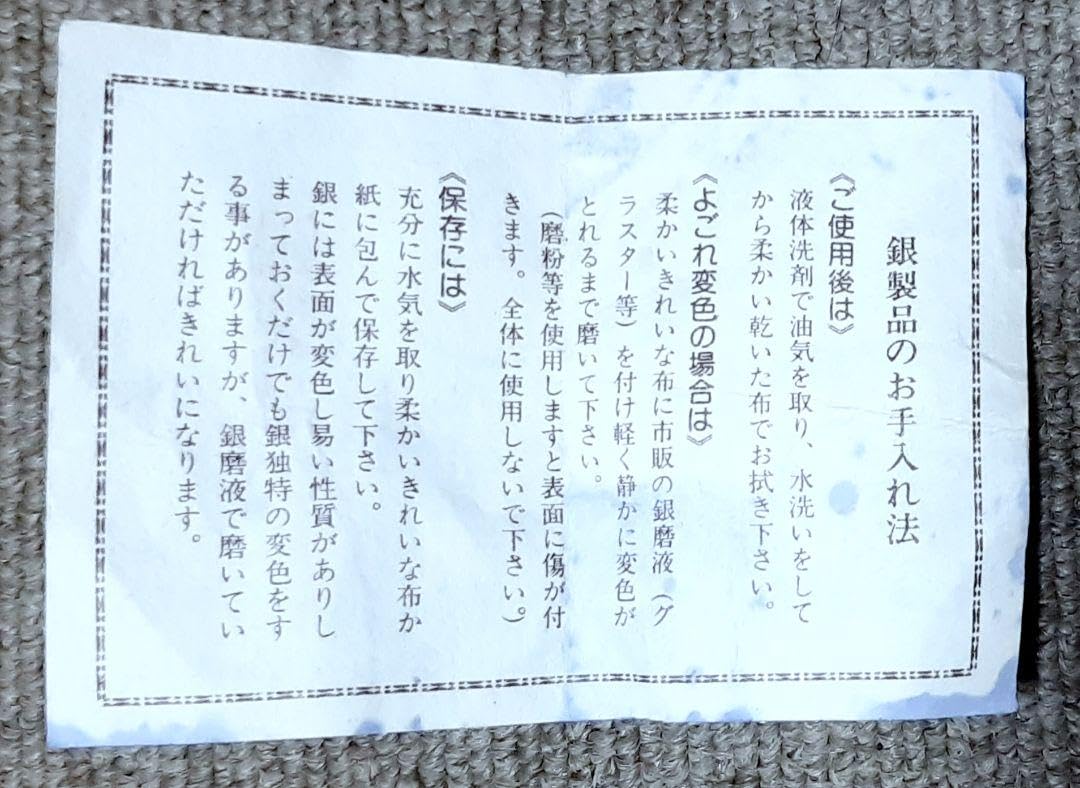 銀製品のお手入れ法
《ご使用後は》
液体洗剤で油気を取り、水洗いをして
から柔かい乾いた布でお拭き下さい。
《よごれ変色の場合は》
柔かいきれいな布に市販の銀磨液（グ
ラスター等）を付け軽く静かに変色が
とれるまで磨いて下さい。
（磨粉等を使用しますと表面に傷が付
きます。全体に使用しないで下さい。）
《保存には》
充分に水気を取り柔かいきれいな布か
紙に包んで保存して下さい。
銀には表面が変色し易い性質がありし
まっておくだけでも銀独特の変色をす
る事がありますが、銀磨液で磨いてい
ただければきれいになります。